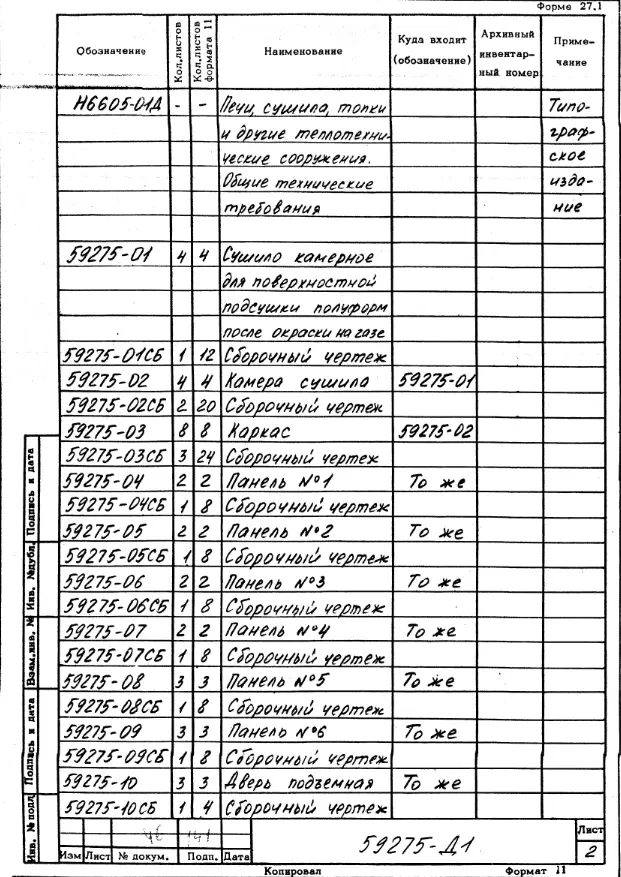 Форма 27.1
Обозначение Кол.листов Кол.листов формата 11 Наименование Куда входит (обозначение) Архивный инвентар- ный номер Приме- чание
Н6605-01Д - - Печи, сушила, топки Типо-
и другие теплотехни- граф-
ческие сооружения. ское
Общие технические изда-
требования ние
59275-01 4 4 Сушило камерное
для поверхностной
подсушки полуформ
после окраски на газе
59275-01СБ 1 12 Сборочный чертеж
59275-02 4 4 Камера сушила 59275-01
59275-02СБ 2 20 Сборочный чертеж
59275-03 8 8 Каркас 59275-02
59275-03СБ 3 24 Сборочный чертеж
59275-04 2 2 Панель №1 То же
59275-04СБ 1 8 Сборочный чертеж
59275-05 2 2 Панель №2 То же
59275-05СБ 1 8 Сборочный чертеж
59275-06 2 2 Панель №3 То же
59275-06СБ 1 8 Сборочный чертеж
59275-07 2 2 Панель №4 То же
59275-07СБ 1 8 Сборочный чертеж
59275-08 3 3 Панель №5 То же
59275-08СБ 1 8 Сборочный чертеж
59275-09 3 3 Панель №6 То же
59275-09СБ 1 8 Сборочный чертеж
59275-10 3 3 Дверь подъемная То же
59275-10СБ 1 4 Сборочный чертеж
Подпись и дата
Инв. №дубл.
Взам.инв. №
Подпись и дата
Инв. №подл
59275-Д1
Лист
2
Изм Лист № докум. Подп. Дата
Копировал Формат 11